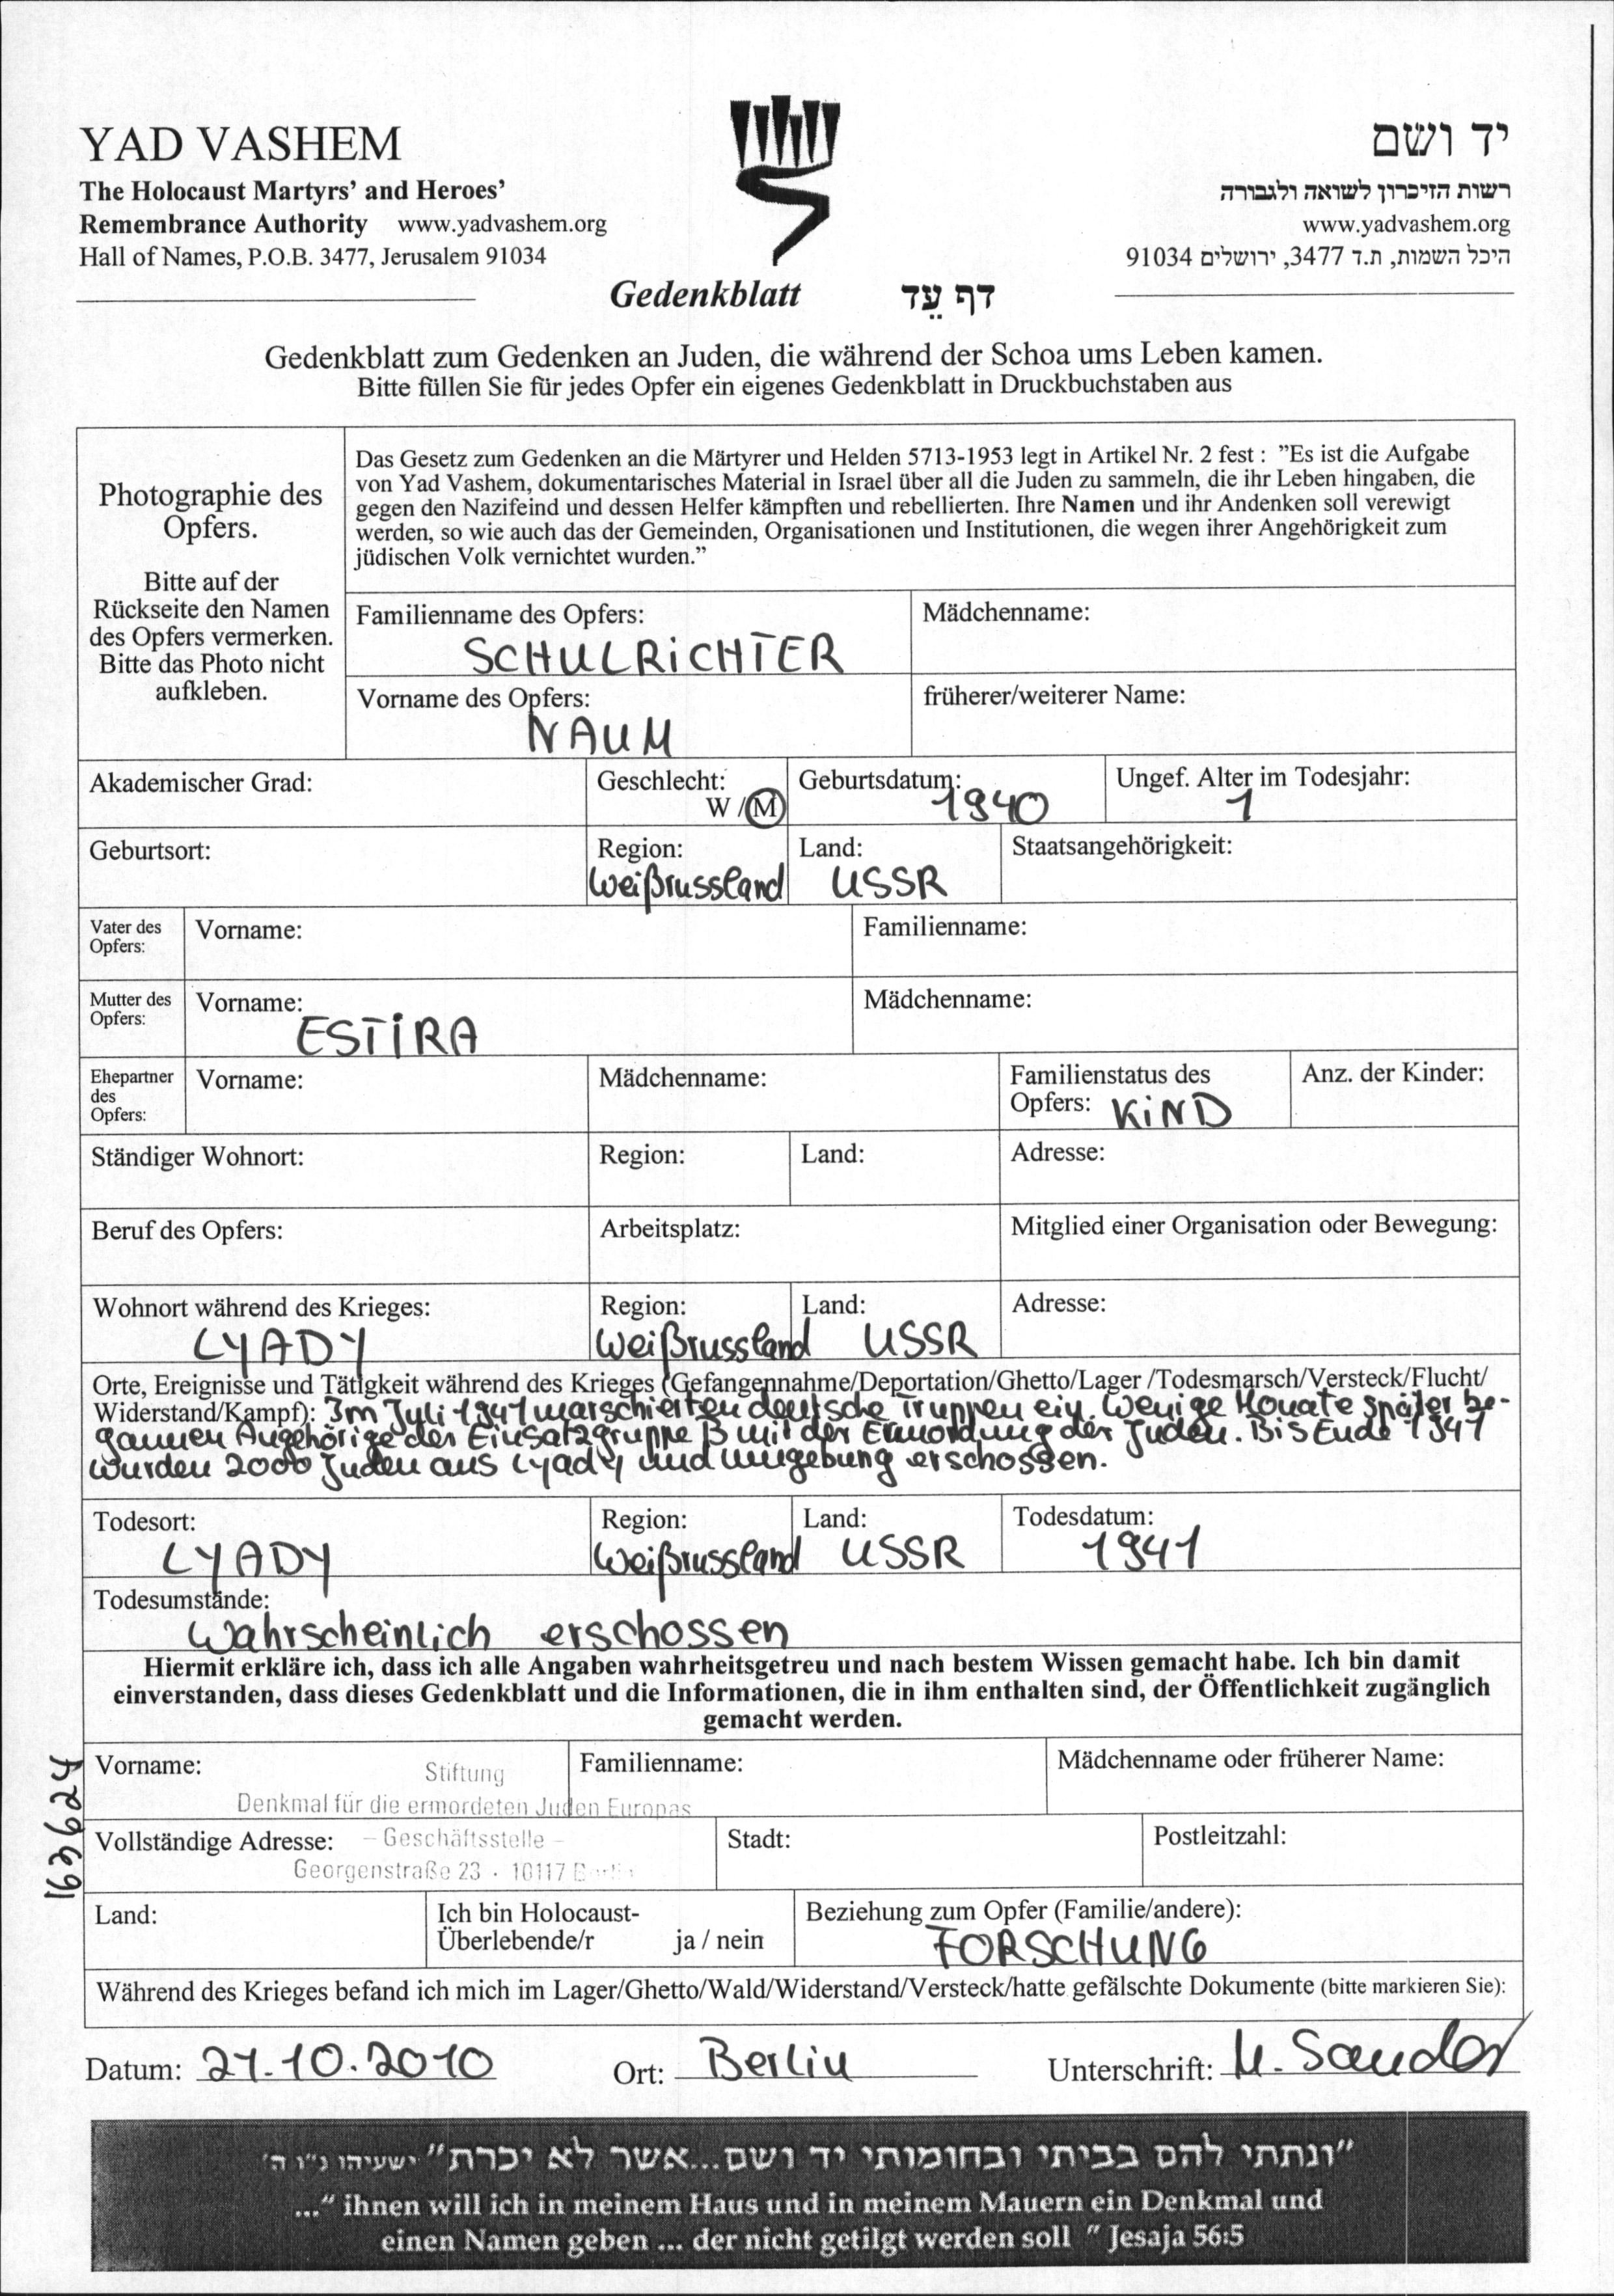 YAD VASHEM
The Holocaust Martyrs' and Heroes'
Remembrance Authority www.yadvashem.org
Hall of Names, P.O.B. 3477, Jerusalem 91034
יד ושם
רשות הזיכרון לשואה ולגבורה
www.yadvashem.org
היכל השמות, ת.ד 3477, ירושלים 91034
Gedenkblatt דף עֵד
Gedenkblatt zum Gedenken an Juden, die während der Schoa ums Leben kamen.
Bitte füllen Sie für jedes Opfer ein eigenes Gedenkblatt in Druckbuchstaben aus
Photographie des
Opfers.
Bitte auf der
Rückseite den Namen
des Opfers vermerken.
Bitte das Photo nicht
aufkleben.
Das Gesetz zum Gedenken an die Märtyrer und Helden 5713-1953 legt in Artikel Nr. 2 fest : "Es ist die Aufgabe
von Yad Vashem, dokumentarisches Material in Israel über all die Juden zu sammeln, die ihr Leben hingaben, die
gegen den Nazifeind und dessen Helfer kämpften und rebellierten. Ihre Namen und ihr Andenken soll verewigt
werden, so wie auch das der Gemeinden, Organisationen und Institutionen, die wegen ihrer Angehörigkeit zum
jüdischen Volk vernichtet wurden."
Familienname des Opfers: Mädchenname:
SCHULRICHTER
Vorname des Opfers: früherer/weiterer Name:
NAUM
Akademischer Grad: Geschlecht: Geburtsdatum: Ungef. Alter im Todesjahr:
W / M 1940 1
Geburtsort: Region: Land: Staatsangehörigkeit:
Weißrussland USSR
Vater des Opfers: Vorname: Familienname:
Mutter des Opfers: Vorname: Mädchenname:
ESTIRA
Ehepartner des Opfers: Vorname: Mädchenname: Familienstatus des Opfers: KIND Anz. der Kinder:
Ständiger Wohnort: Region: Land: Adresse:
Beruf des Opfers: Arbeitsplatz: Mitglied einer Organisation oder Bewegung:
Wohnort während des Krieges: Region: Land: Adresse:
LYADY Weißrussland USSR
Orte, Ereignisse und Tätigkeit während des Krieges (Gefangennahme/Deportation/Ghetto/Lager /Todesmarsch/Versteck/Flucht/
Widerstand/Kampf): Im Juli 1941 marschierten deutsche Truppen ein. Wenige Monate später be-
gannen Angehörige der Einsatzgruppe B mit der Ermordung der Juden. Bis Ende 1941
wurden 2000 Juden aus Lyady und Umgebung erschossen.
Todesort: Region: Land: Todesdatum:
LYADY Weißrussland USSR 1941
Todesumstände:
Wahrscheinlich erschossen
Hiermit erkläre ich, dass ich alle Angaben wahrheitsgetreu und nach bestem Wissen gemacht habe. Ich bin damit
einverstanden, dass dieses Gedenkblatt und die Informationen, die in ihm enthalten sind, der Öffentlichkeit zugänglich
gemacht werden.
Vorname: Familienname: Mädchenname oder früherer Name:
Stiftung
Denkmal für die ermordeten Juden Europas
Vollständige Adresse: Stadt: Postleitzahl:
– Geschäftsstelle –
Georgenstraße 23 · 10117 Berlin
163624
Land: Ich bin Holocaust- Beziehung zum Opfer (Familie/andere):
Überlebende/r ja / nein FORSCHUNG
Während des Krieges befand ich mich im Lager/Ghetto/Wald/Widerstand/Versteck/hatte gefälschte Dokumente (bitte markieren Sie):
Datum: 21.10.2010 Ort: Berlin Unterschrift: U. Sander
"ונתתי להם בביתי ובחומותי יד ושם...אשר לא יכרת" ישעיהו נ"ו ה'
..." ihnen will ich in meinem Haus und in meinem Mauern ein Denkmal und
einen Namen geben ... der nicht getilgt werden soll " Jesaja 56:5